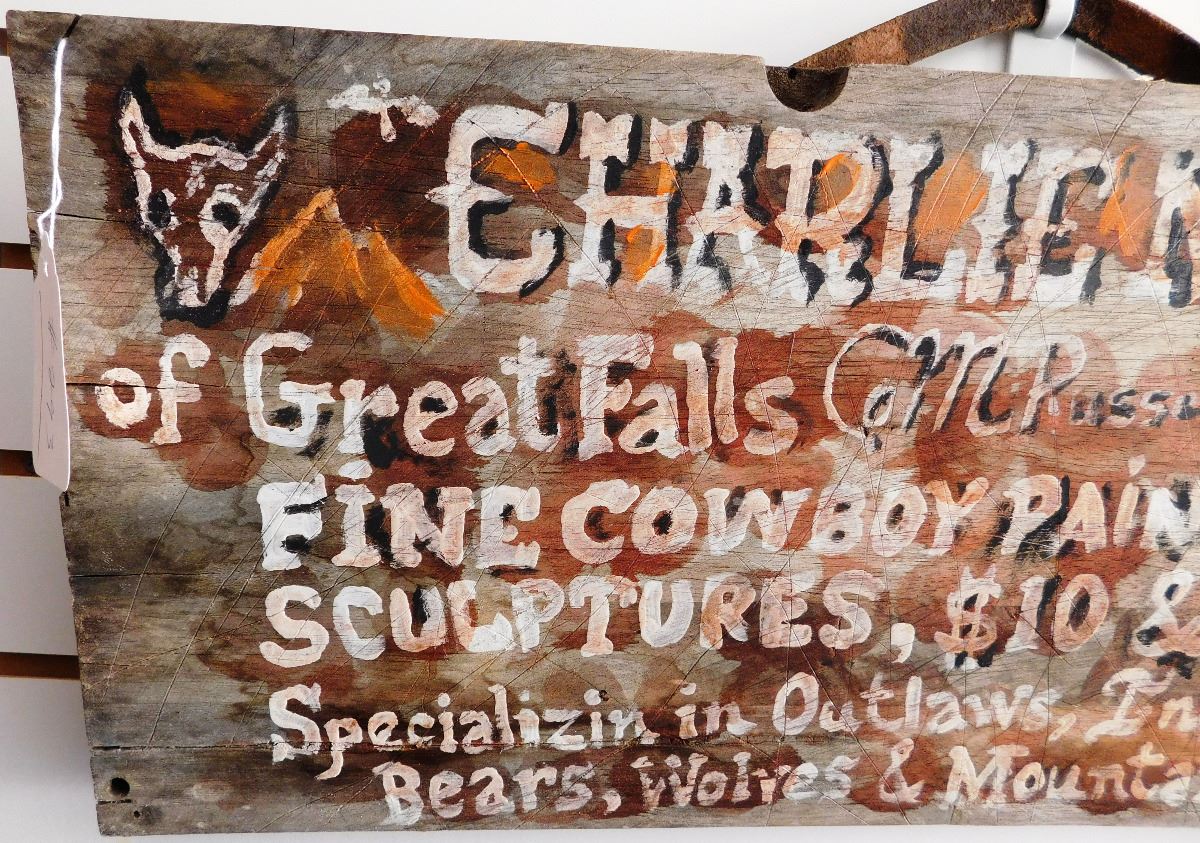 CHARLIE
of Great Falls CM Russ
FINE COWBOY PAIN
SCULPTURES, $10 &
Specializin in Outlaws, In
Bears, Wolves & Mounta